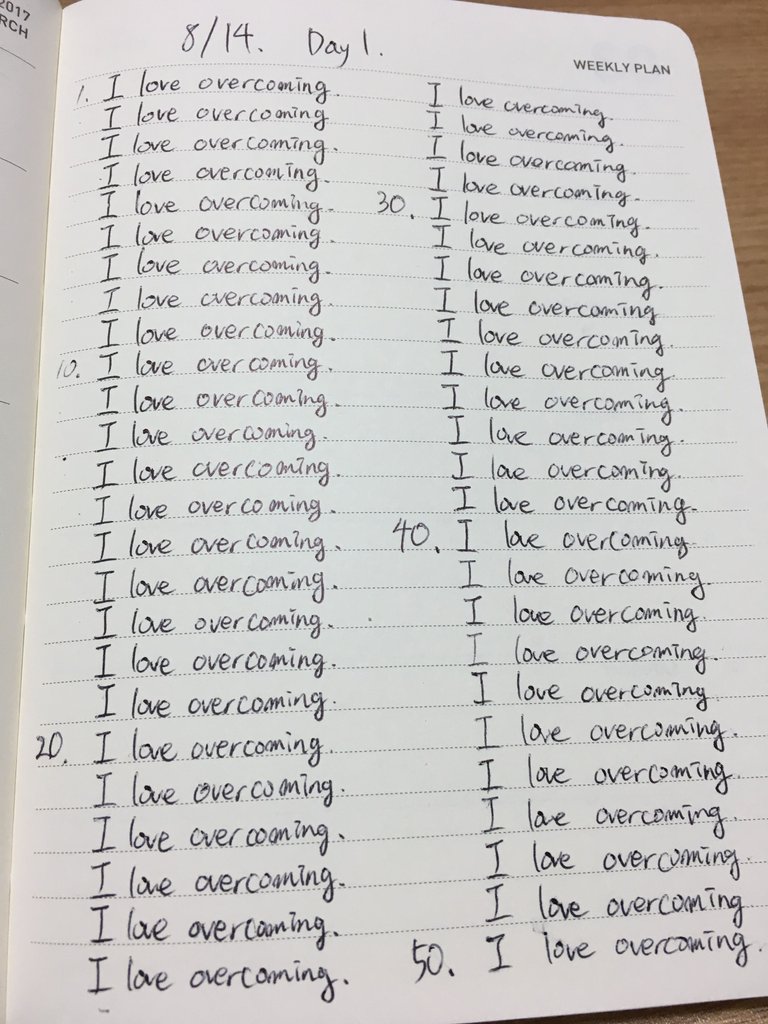 2017
RCH
8/14. Day 1.
WEEKLY PLAN
1. I love overcoming.
I love overcoming
I love overcoming.
I love overcoming.
I love overcoming.
I love overcoming.
I love overcoming.
I love overcoming.
I love overcoming.
10. I love overcoming.
I love overcoming.
I love overcoming.
I love overcoming.
I love overcoming.
I love overcoming.
I love overcoming.
I love overcoming.
I love overcoming.
I love overcoming.
20. I love overcoming.
I love overcoming.
I love overcoming.
I love overcoming.
I love overcoming.
I love overcoming.
I love overcoming.
I love overcoming.
I love overcoming.
I love overcoming.
30. I love overcoming.
I love overcoming.
I love overcoming.
I love overcoming
I love overcoming.
I love overcoming.
I love overcoming.
I love overcoming.
I love overcoming.
I love overcoming.
40. I love overcoming
I love overcoming.
I love overcoming.
I love overcoming.
I love overcoming
I love overcoming.
I love overcoming.
I love overcoming.
I love overcoming.
I love overcoming
50. I love overcoming.